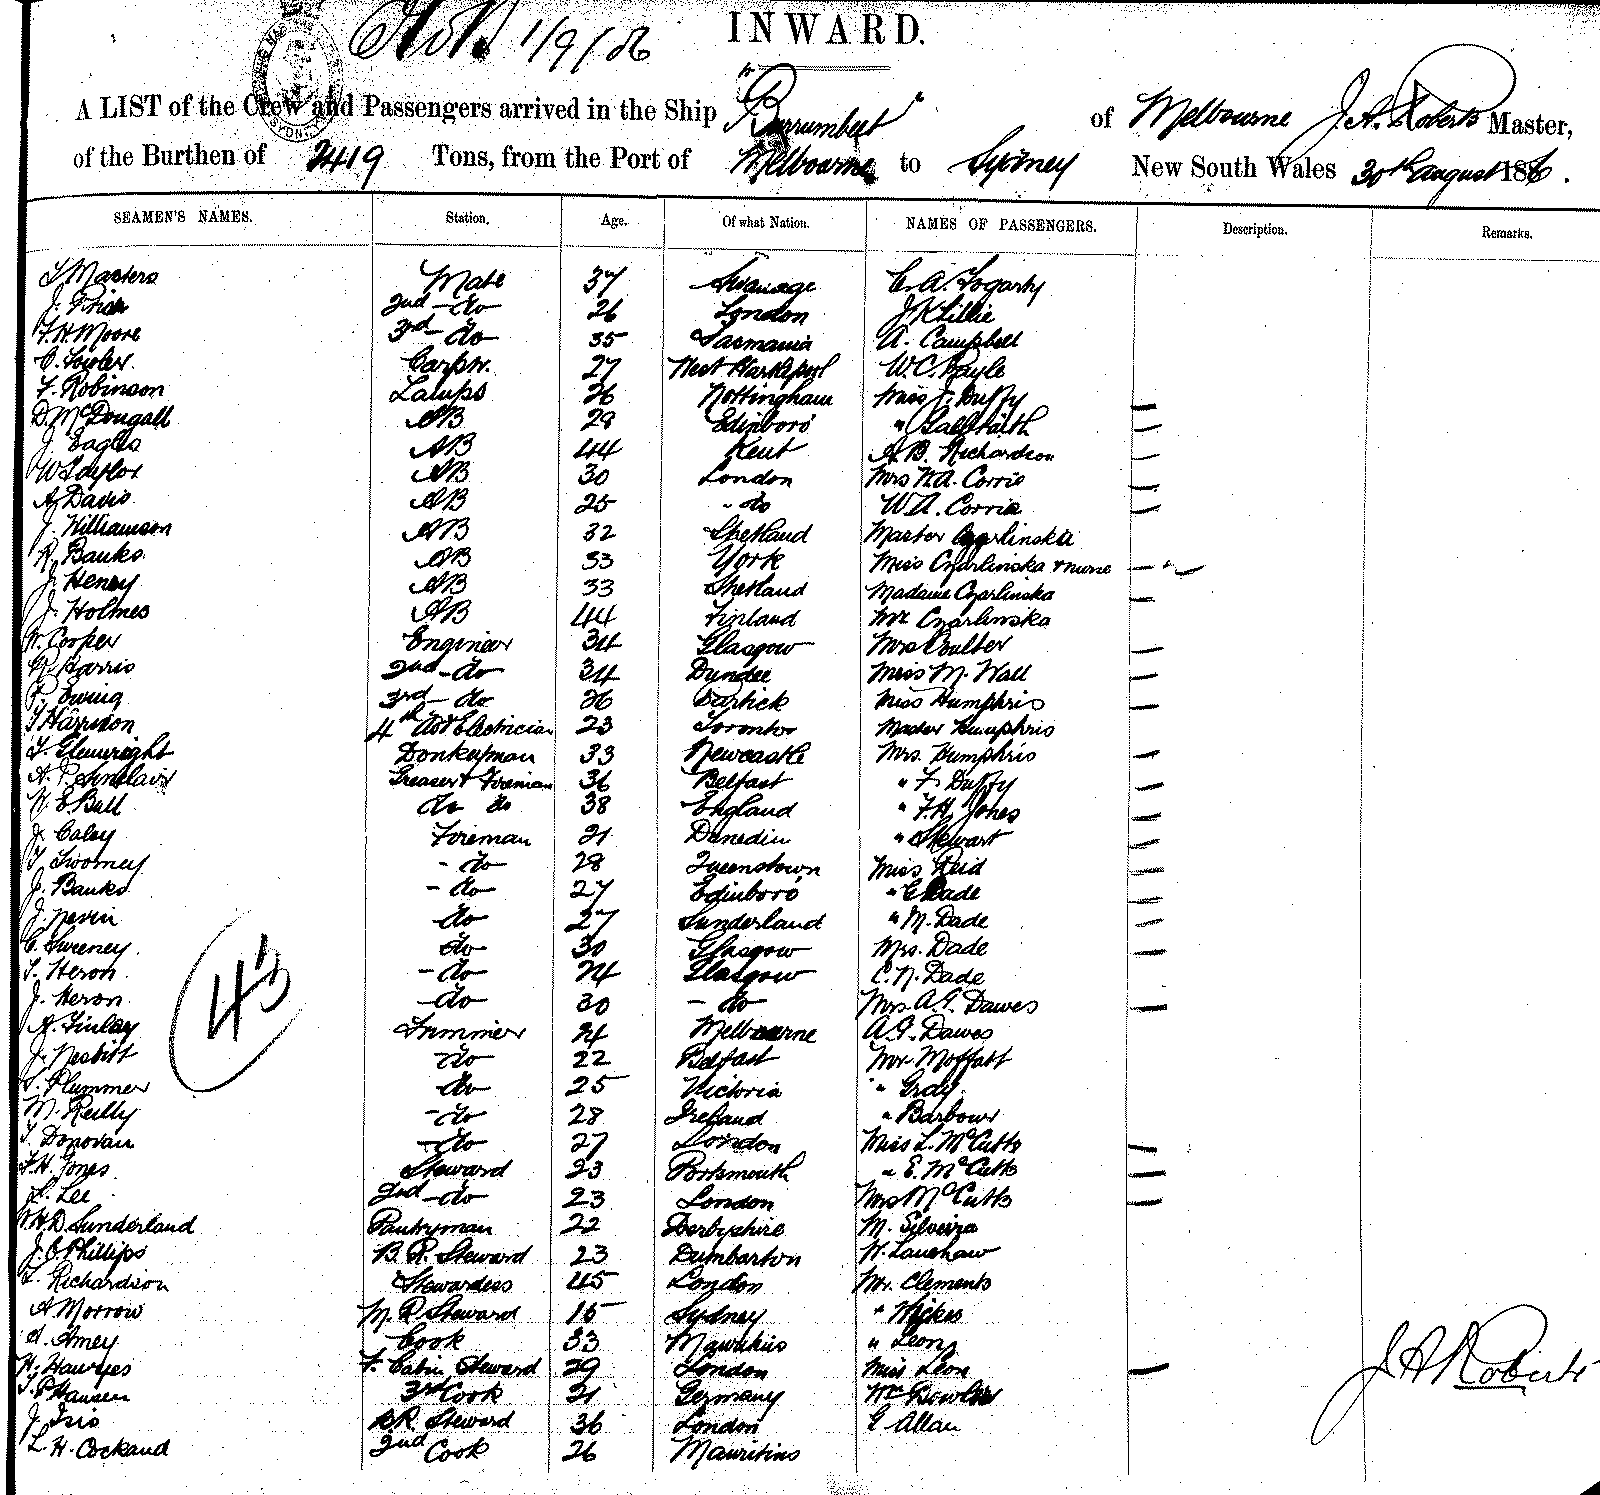 1/9/86
INWARD.
A LIST of the Crew and Passengers arrived in the Ship "Burrumbeet" of Melbourne J. A. Roberts Master,
of the Burthen of 2419 Tons, from the Port of Melbourne to Sydney New South Wales 30th August 1886.
SEAMEN'S NAMES. Station. Age. Of what Nation. NAMES OF PASSENGERS. Description. Remarks.
T Masters Mate 37 Swanage C. A. Fogarty
J. Price 2nd - do 26 London J K Lillie
F. H. Moore 3rd - do 35 Tasmania A. Campbell
C. Fowler Carptr. 27 West Hartlepool W. C. Rayle
F. Robinson Lamps 26 Nottingham Miss F. Duffy
D. McDougall AB 29 Edinboro' " Galbraith
J. Eagles AB 44 Kent A. B. Richardson
W Taylor AB 30 London Mrs W. A. Corrie
A. Davis AB 25 - do W A. Corrie
J. Williamson AB 32 Shetland Master Czarlinska
R. Banks AB 33 York Miss Czarlinska & nurse
J. Heney AB 33 Shetland Madame Czarlinska
J. Holmes AB 44 Finland Mr Czarlinska
W. Cooper Engineer 34 Glasgow Mrs Coulter
G. Harris 2nd - do 34 Dundee Miss M. Wall
R. Ewing 3rd - do 26 Partick Miss Humphris
T Harrison 4th do & Electrician 23 Toronto Master Humphris
T. Clenwright Donkeyman 33 Newcastle Mrs. Humphris
A. P. Sinclair Greaser & Fireman 36 Belfast " F. Duffy
W. E. Ball do do 38 England " F. H. Jones
J. Caley Fireman 21 Dunedin " Stewart
T. Twomey - do 28 Queenstown Miss Reid
J. Banks - do 27 Edinboro' " G Dade
J. Nevin do 27 Sunderland " M. Dade
C. Sweeney do 30 Glasgow Mrs. Dade
T. Heron - do 24 Glasgow C. N. Dade
J. Heron - do 30 - do Mrs A. G. Dawes
A. Finlay Trimmer 24 Melbourne A. G. Dawes
J. Nesbitt do 22 Belfast Mr. Moffatt
T. Plummer do 25 Victoria " Gray
M. Reilly - do 28 Ireland " Barbour
T. Donovan - do 27 London Miss L. McCutts
F. H. Jones Steward 23 Portsmouth " E. McCutts
L. Lee 2nd - do 23 London Mrs McCutts
H. D. Sunderland Pantryman 22 Derbyshire M. Silveira
J. C Phillips B. R. Steward 23 Dumbarton W. Lanshaw
L. Richardson Stewardess 45 London Mr. Clements
A Morrow M. R Steward 15 Sydney " Hickes
A. Amey Cook 33 Mauritius " Leon
H. Hawkes F. Cabin Steward 29 London Miss Leon
T. P Hansen 3rd Cook 21 Germany Mr Bowles
J. Isis R R. Steward 36 London G Allan
L. H. Cockaud 2nd Cook 26 Mauritius
43
J A Roberts